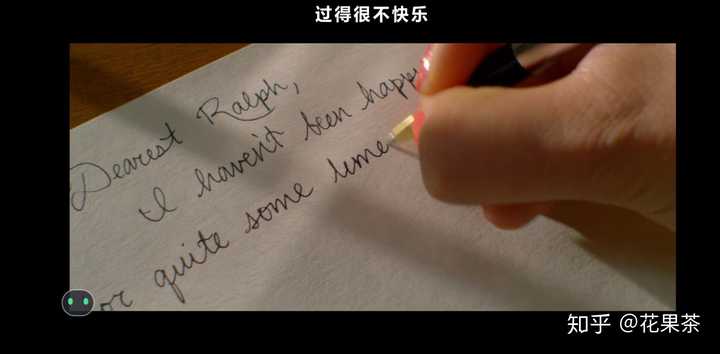 过得很不快乐
Dearest Ralph,
I haven't been happy
or quite some time
知乎 @花果茶